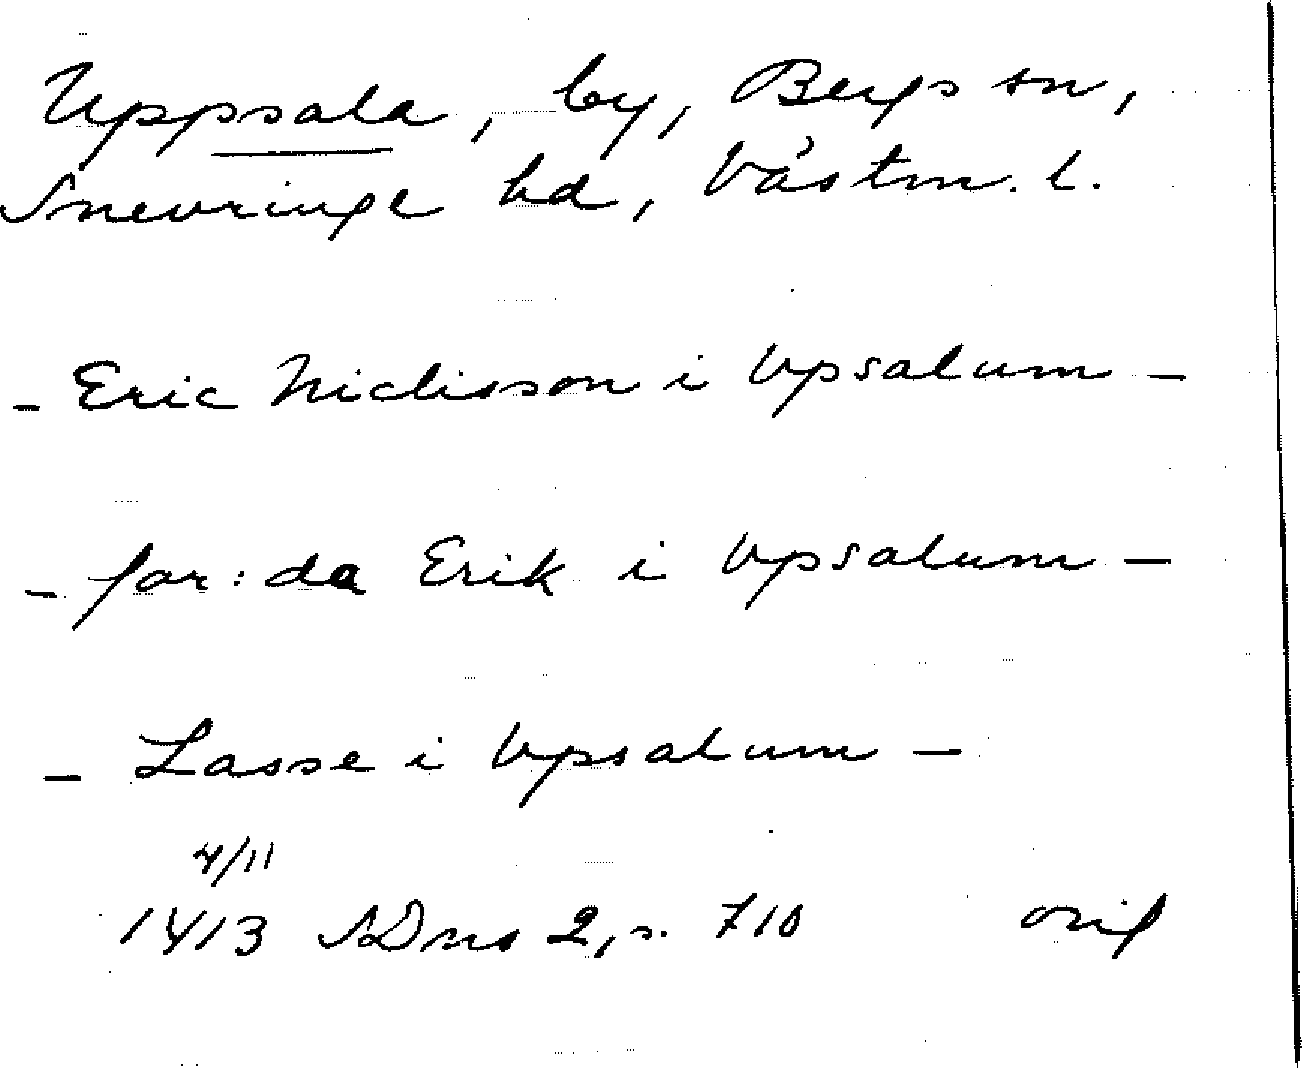 Uppsala, by, Bergs sn,
Snevringe hd, Västm. l.
- Eric Niclisson i Vpsalum -
- for:da Erik i Vpsalum -
- Lasse i Vpsalum -
4/11
1413 SDns 2, s. 710 orig